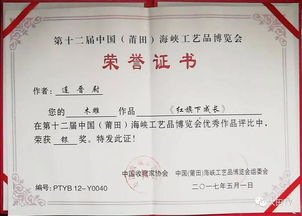 第十二届中国（莆田）海峡工艺品博览会
荣誉证书
作者：连晋尉
您的 木雕 作品 《红旗下成长》
在第十二届中国（莆田）海峡工艺品博览会优秀作品评比中，
荣获 银 奖。特发此证！
中国收藏家协会 中国（莆田）海峡工艺品博览会组委会
编号：PTYB 12-Y0040 二〇一七年五月一日